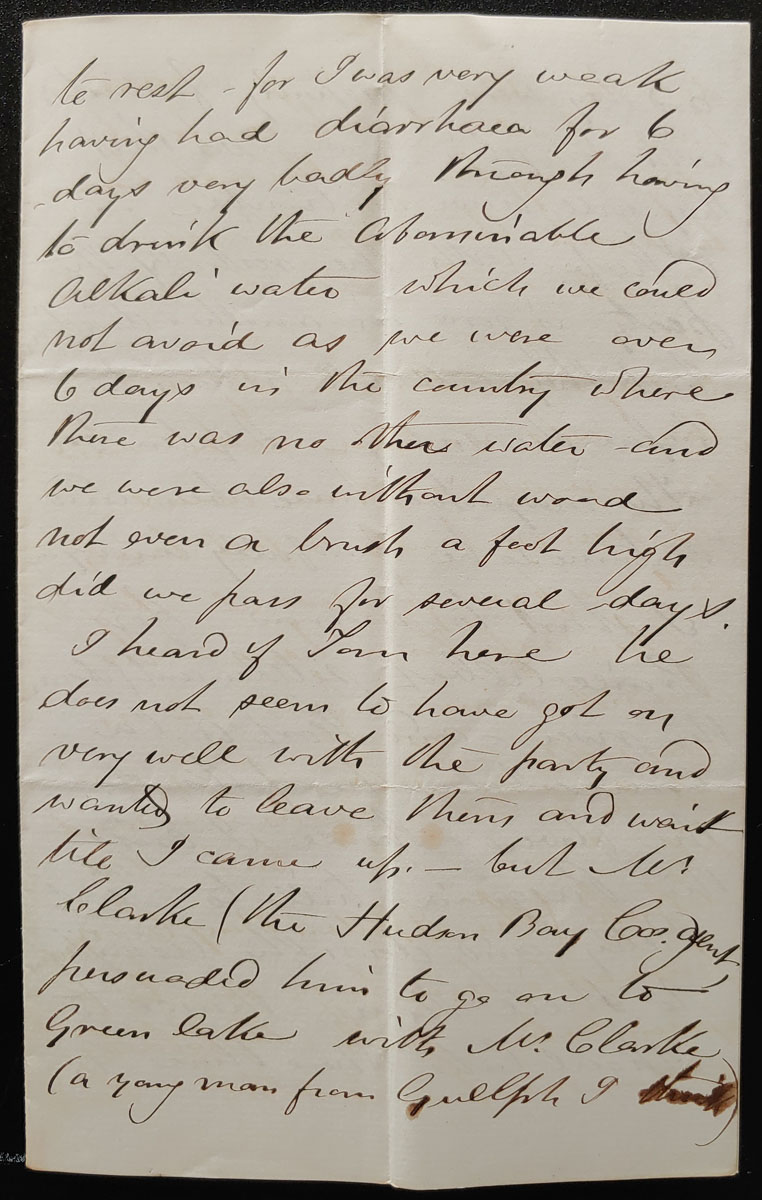 to rest - for I was very weak
having had diarrhaea for 6
days very badly through having
to drink the abominable
Alkali water which we could
not avoid as we were over
6 days in the country where
there was no other water - and
we were also without wood
not even a brush a foot high
did we pass for several days.
I heard of Tom here he
does not seem to have got on
very well with the party and
wanted to leave them and wait
till I came up. — but Mr
Clarke (the Hudson Bay Cos. Agent,
persuaded him to go on to
Green lake with Mr. Clarke
(a young man from Guelph I think)